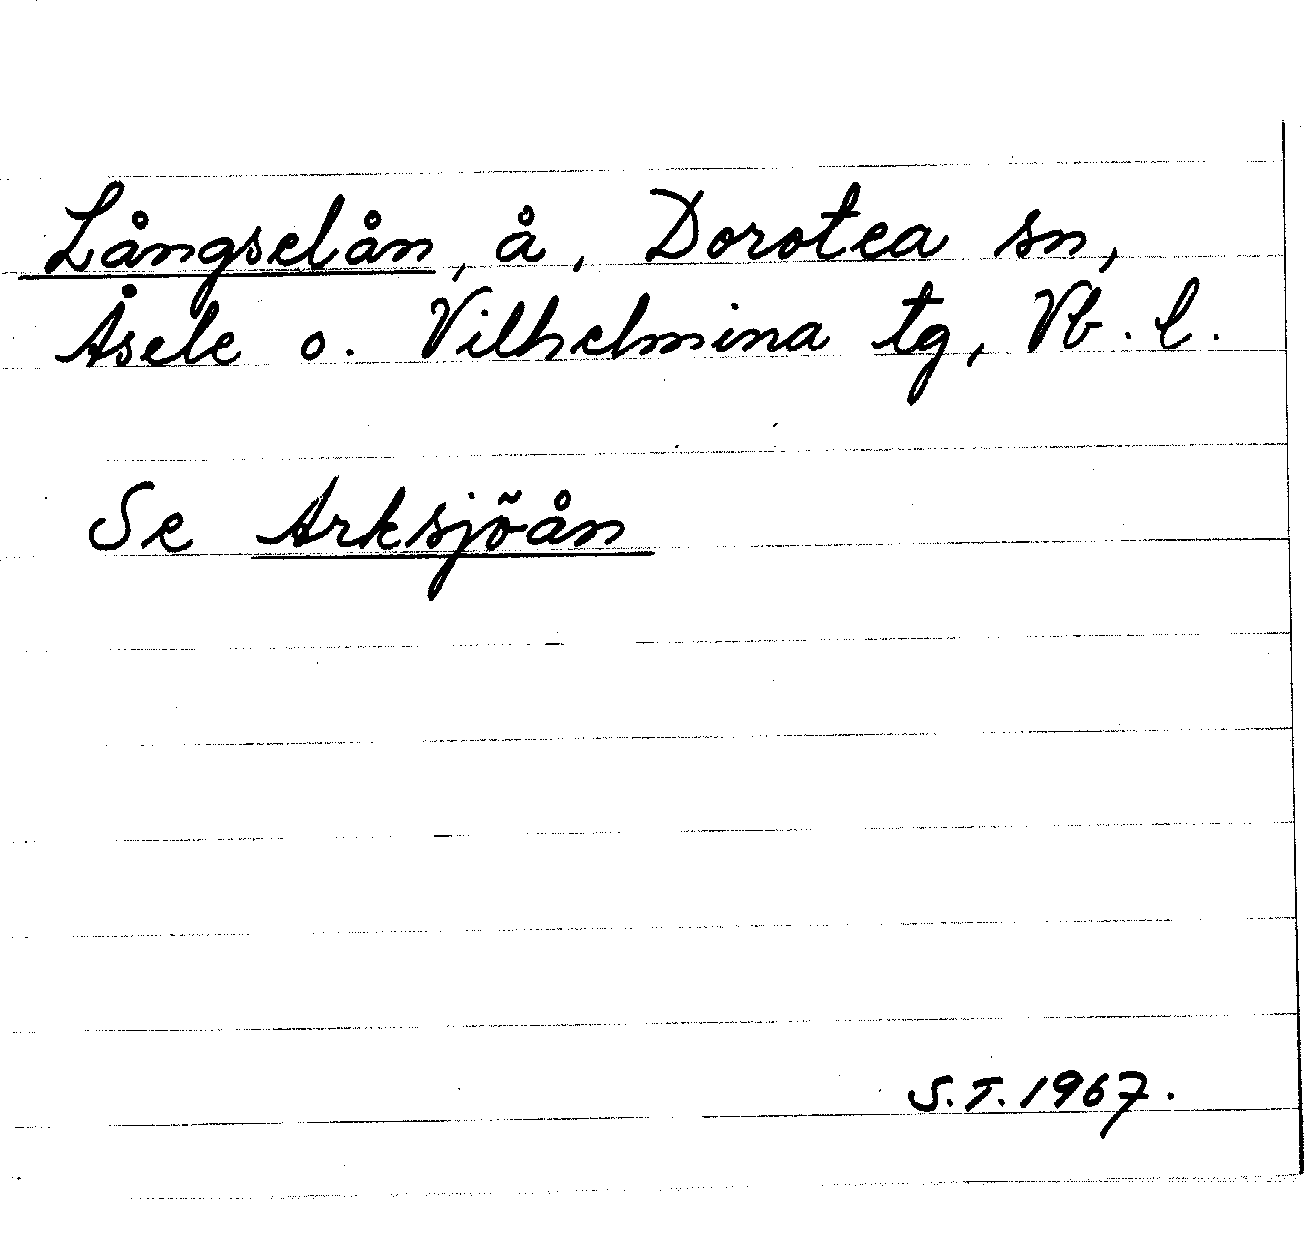 Långselån, å, Dorotea sn,
Åsele o. Vilhelmina tg, Vb. l.
Se Arksjöån
S.T. 1967.